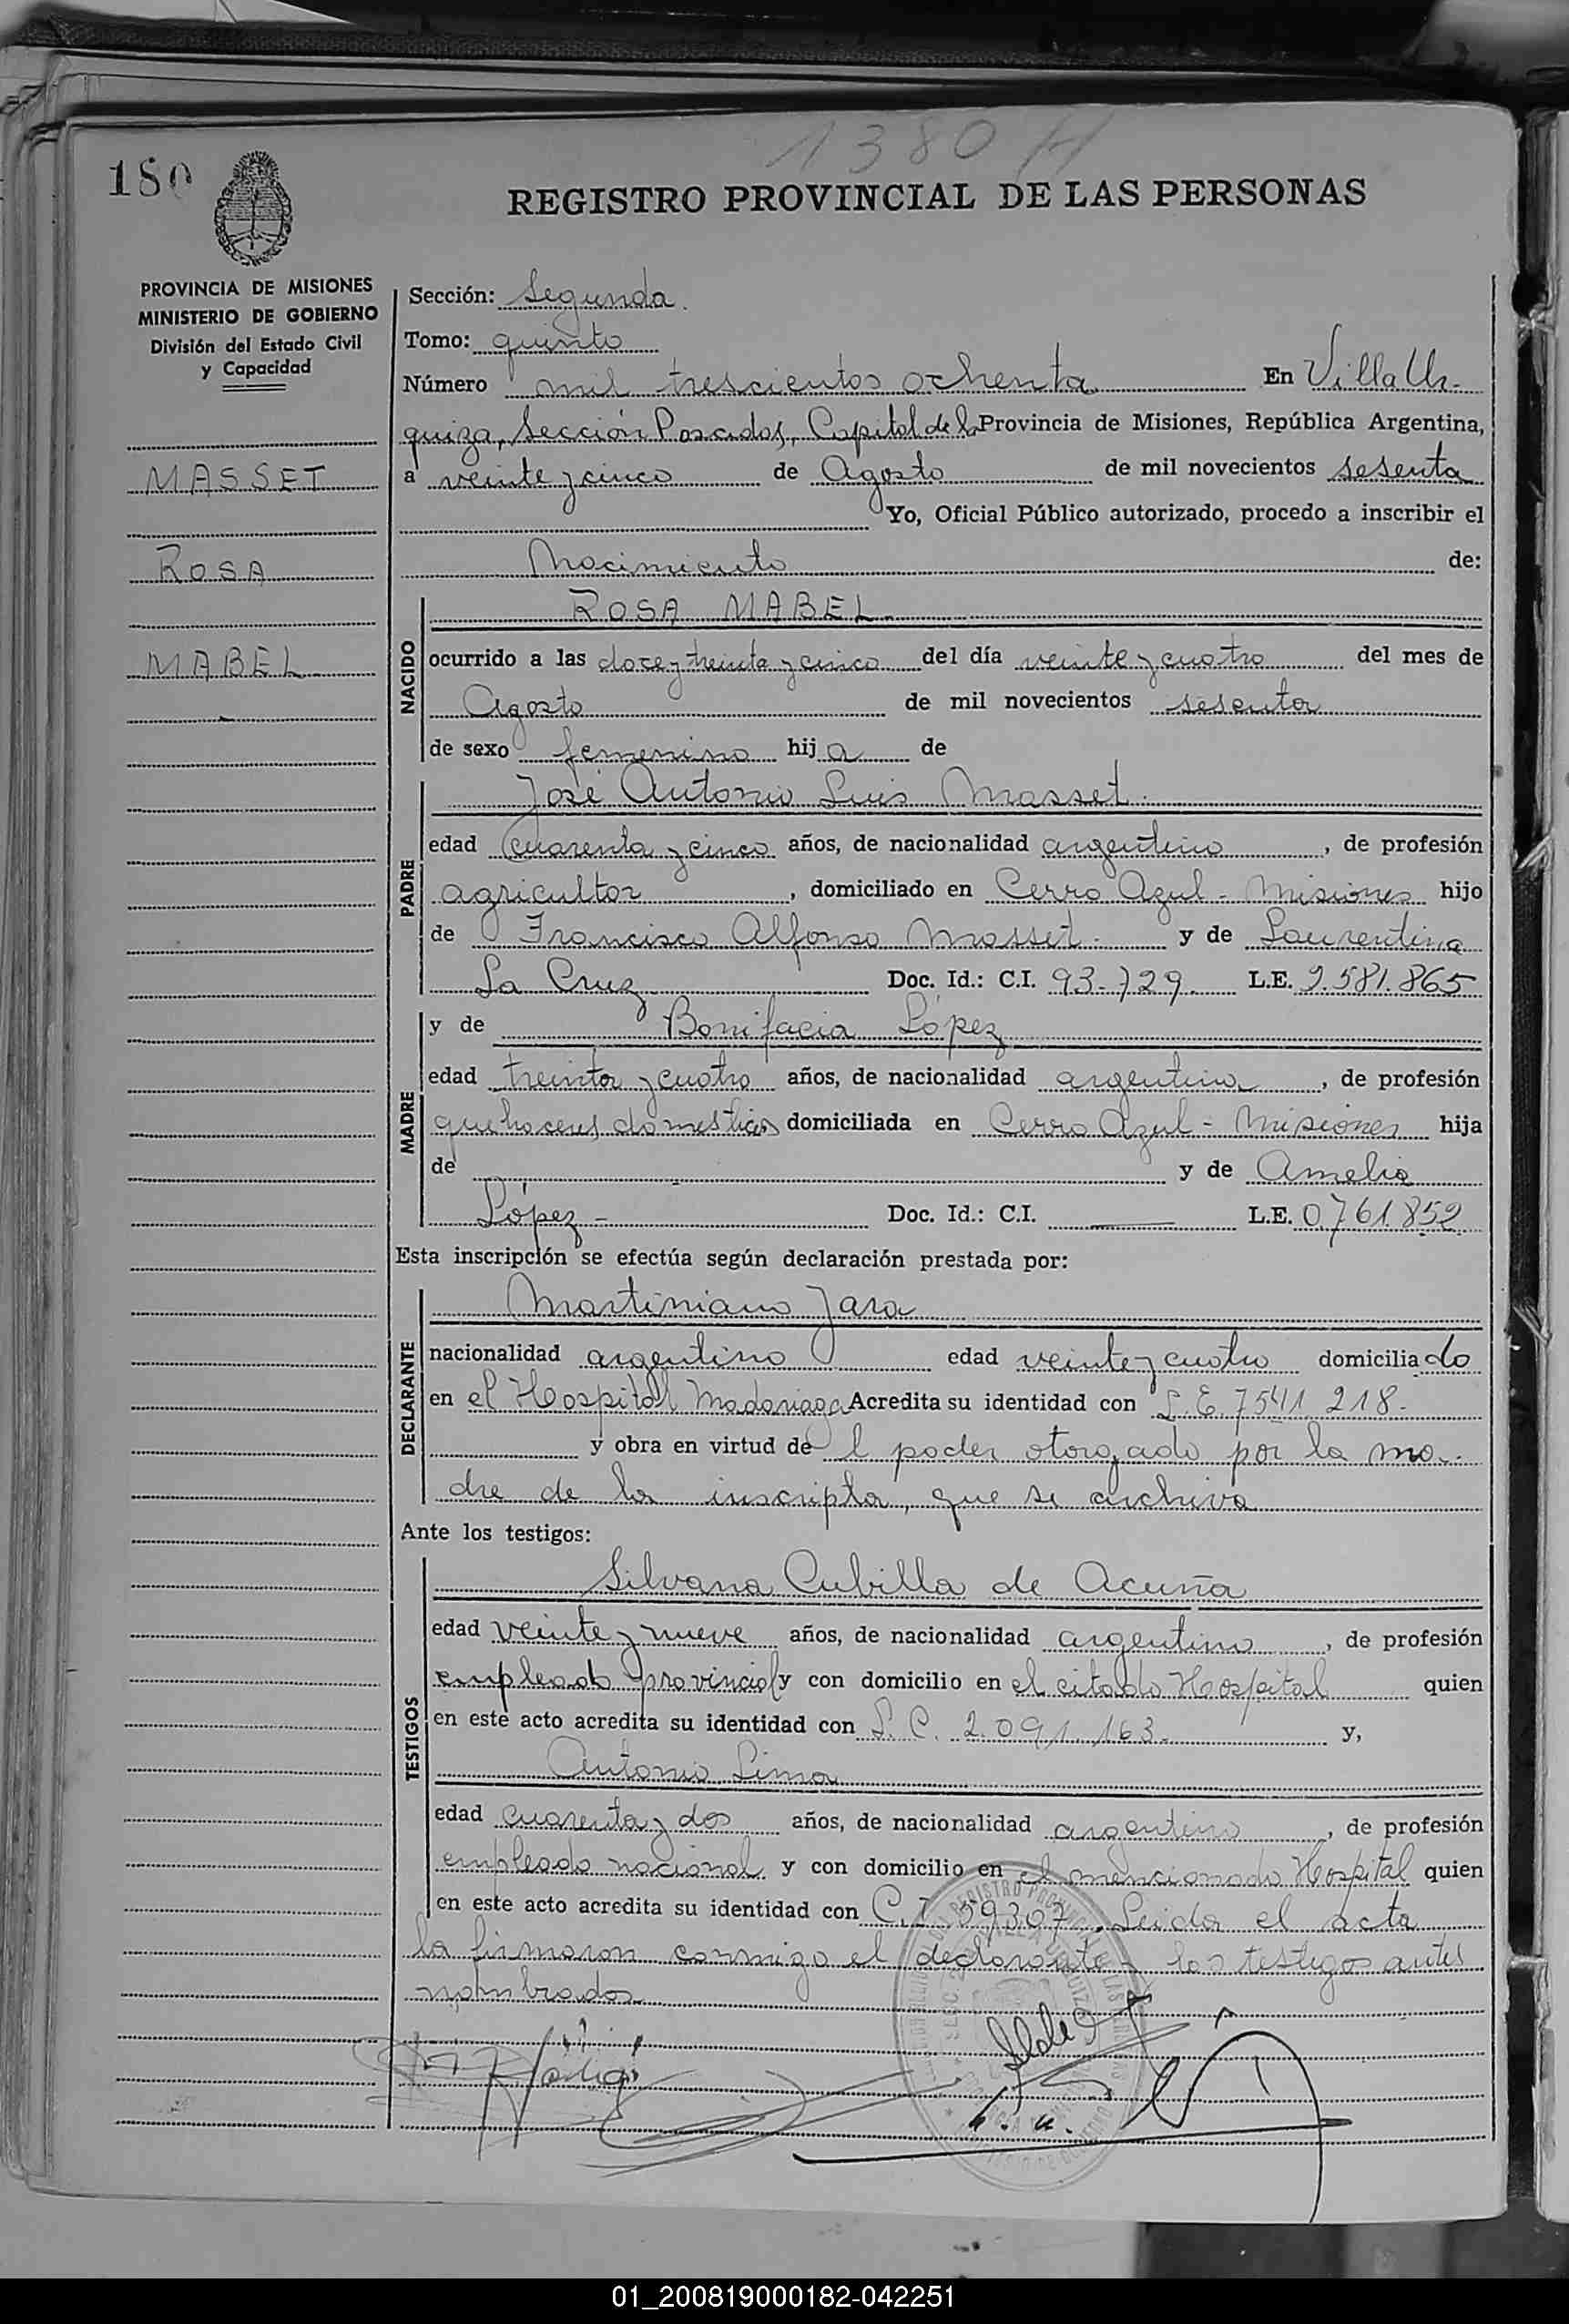 1380 H
180
REGISTRO PROVINCIAL DE LAS PERSONAS
PROVINCIA DE MISIONES
MINISTERIO DE GOBIERNO
División del Estado Civil
y Capacidad
MASSET
ROSA
MABEL
Sección: Segunda.
Tomo: quinto
Número mil trescientos ochenta En Villa Ur-
quiza, Sección Posadas, Capital de la Provincia de Misiones, República Argentina,
a veinte y cinco de Agosto de mil novecientos sesenta
Yo, Oficial Público autorizado, procedo a inscribir el
Nacimiento de:
NACIDO
ROSA MABEL
ocurrido a las doce y treinta y cinco del día veinte y cuatro del mes de
Agosto de mil novecientos sesenta
de sexo femenino hija de
PADRE
José Antonio Luis Masset.
edad cuarenta y cinco años, de nacionalidad argentino, de profesión
agricultor, domiciliado en Cerro Azul - Misiones hijo
de Francisco Alfonso Masset. y de Laurentina
La Cruz Doc. Id.: C.I. 93.729. L.E. 2.581.865
MADRE
y de Bonifacia López
edad treinta y cuatro años, de nacionalidad argentina, de profesión
quehaceres domesticos domiciliada en Cerro Azul - Misiones hija
de - y de Amelia
López - Doc. Id.: C.I. — L.E. 0.761.852
Esta inscripción se efectúa según declaración prestada por:
DECLARANTE
Martiniano Jara
nacionalidad argentino edad veinte y cuatro domiciliado
en el Hospital Madariaga Acredita su identidad con L.E 7541.218.-
y obra en virtud del poder otorgado por la ma-
dre de la inscripta, que se archiva
Ante los testigos:
TESTIGOS
Silvana Cubilla de Acuña
edad veinte y nueve años, de nacionalidad argentina, de profesión
empleada provincial y con domicilio en el citado Hospital quien
en este acto acredita su identidad con L.C. 2.091.163.- y,
Antonio Lima
edad cuarenta y dos años, de nacionalidad argentino, de profesión
empleado nacional y con domicilio en el mencionado Hospital quien
en este acto acredita su identidad con C.I 59307. Leida el acta
la firmaron conmigo el declarante y los testigos antes
nombrados
01_200819000182-042251